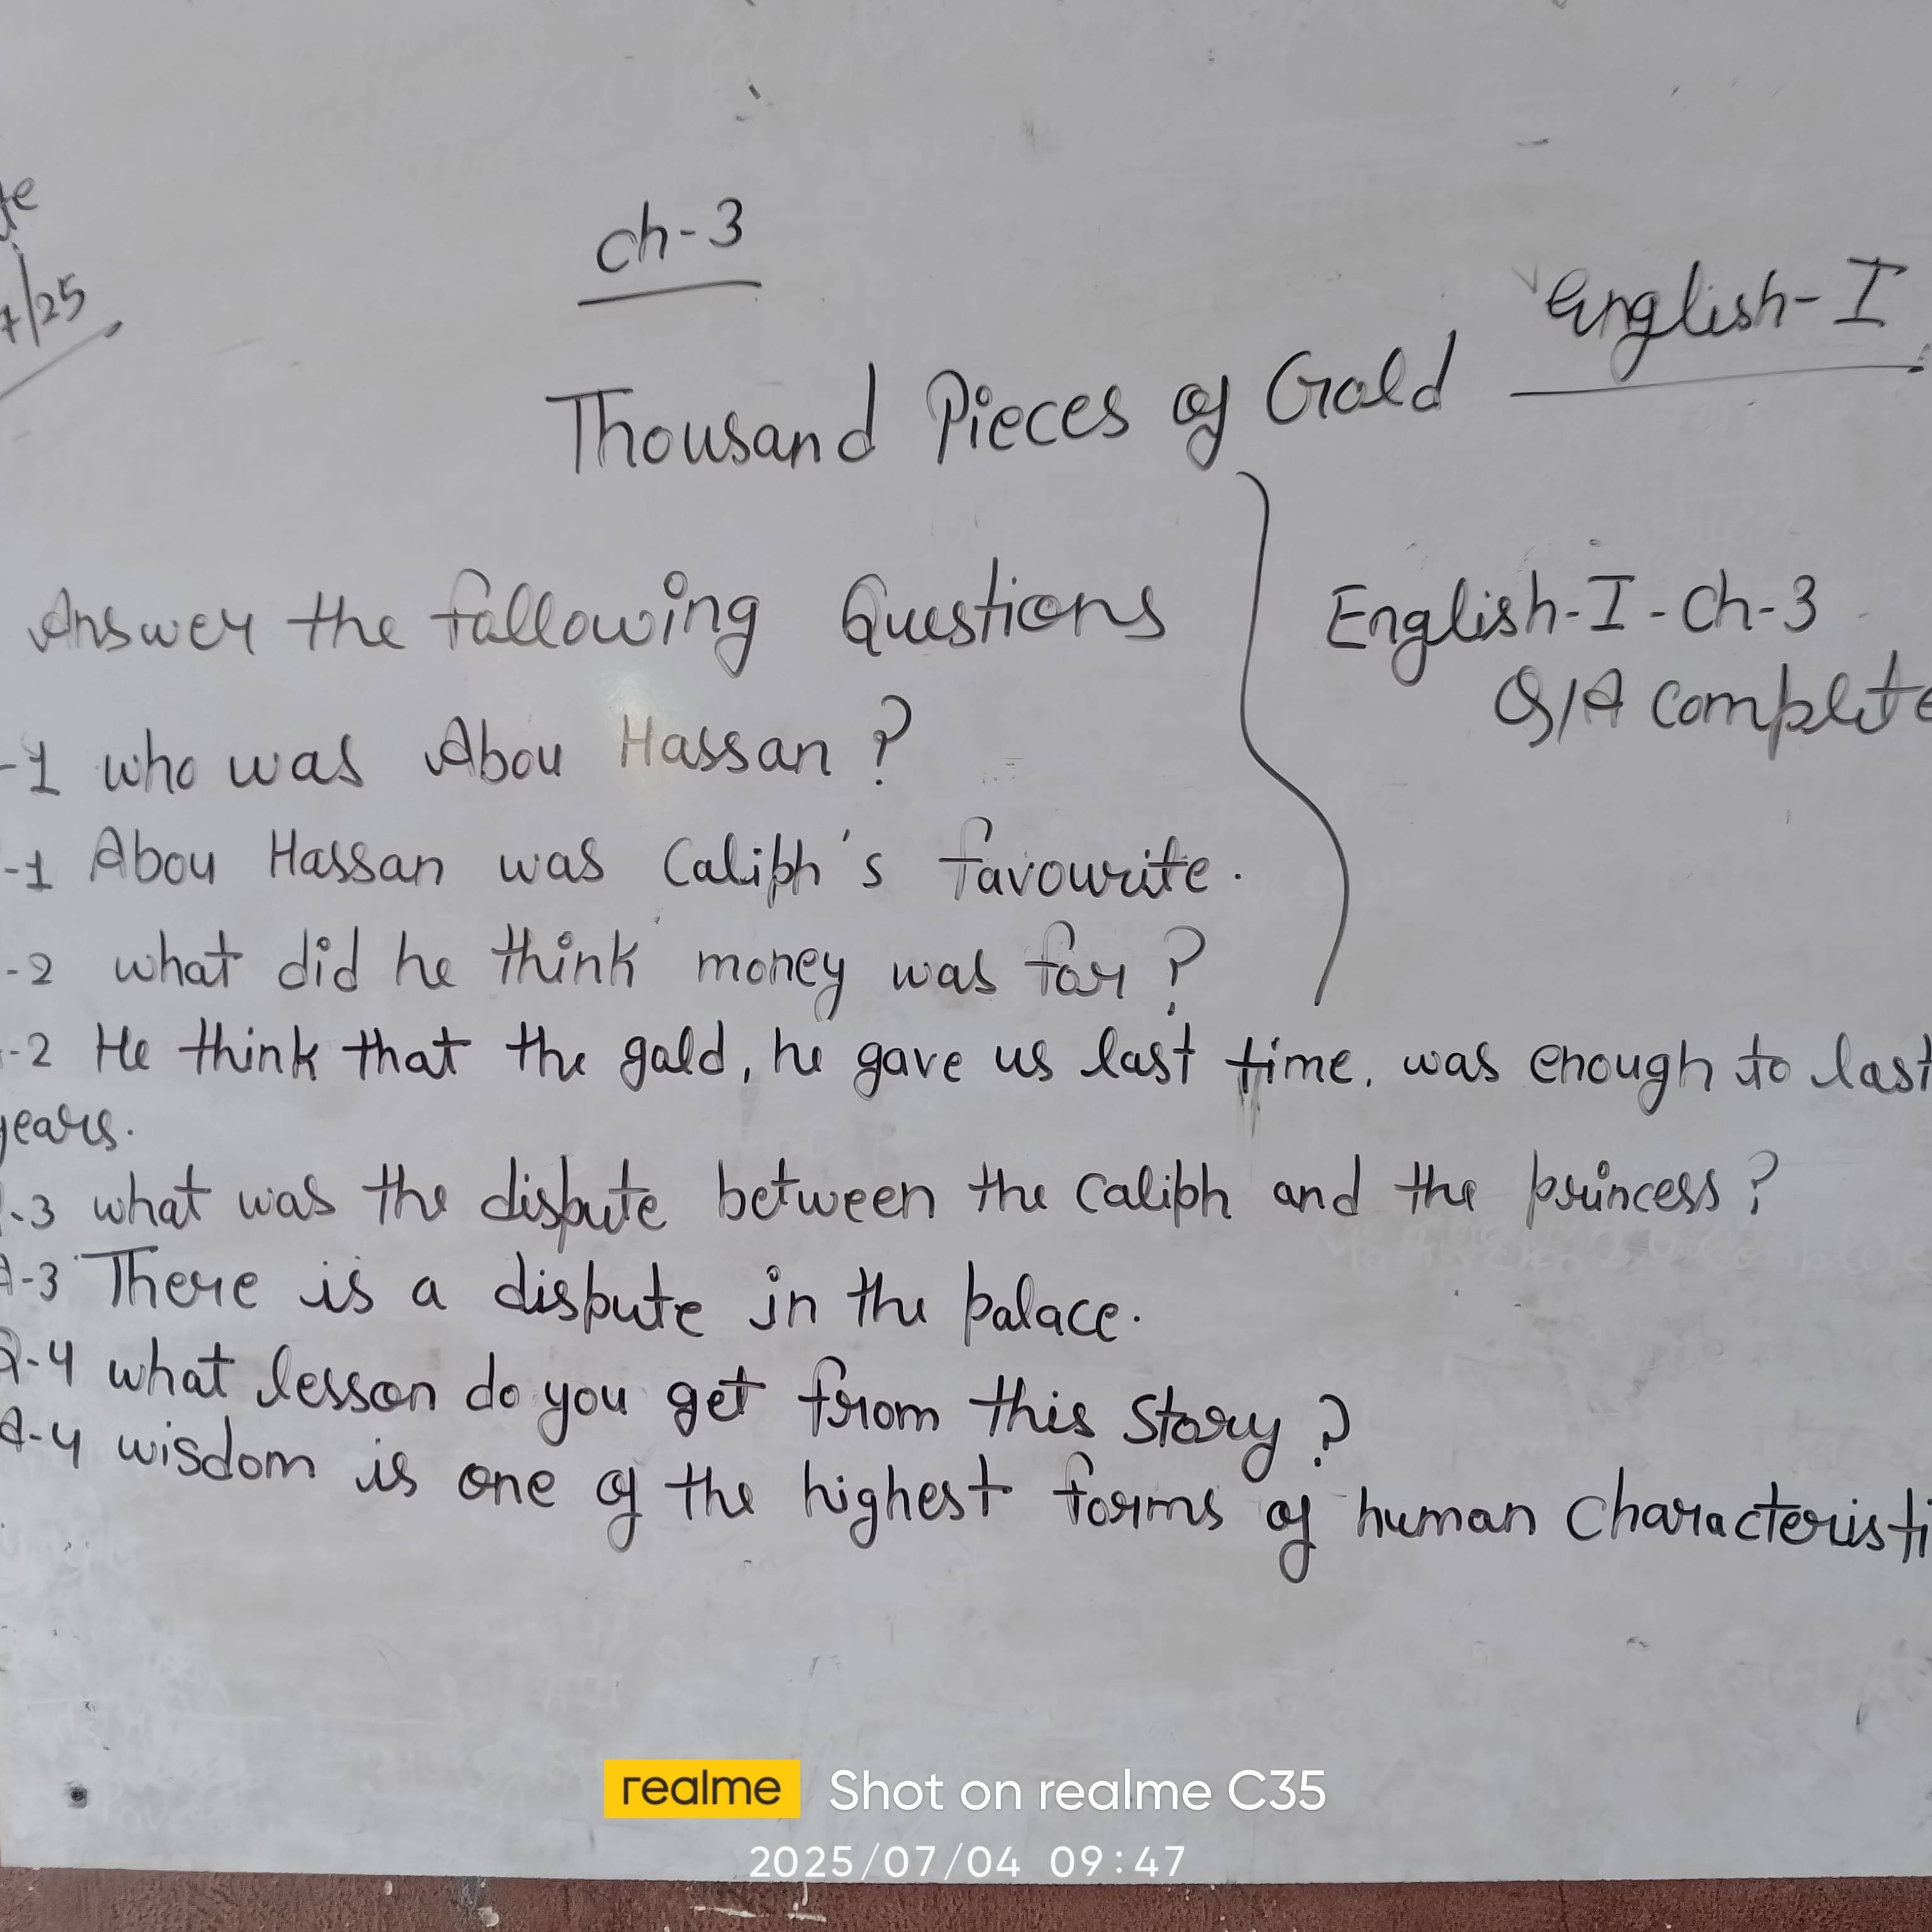 te
7/25
ch-3
English-I
Thousand Pieces of Gold
Answer the following Questions
English-I-Ch-3
Q/A complete
-1 who was Abou Hassan?
-1 Abou Hassan was Caliph's favourite.
-2 what did he think money was for?
-2 He think that the gold, he gave us last time, was enough to last
years.
-3 what was the dispute between the caliph and the princess?
A-3 There is a dispute in the palace.
Q-4 what lesson do you get from this story?
A-4 wisdom is one of the highest forms of human characteristi
realme Shot on realme C35
2025/07/04 09:47